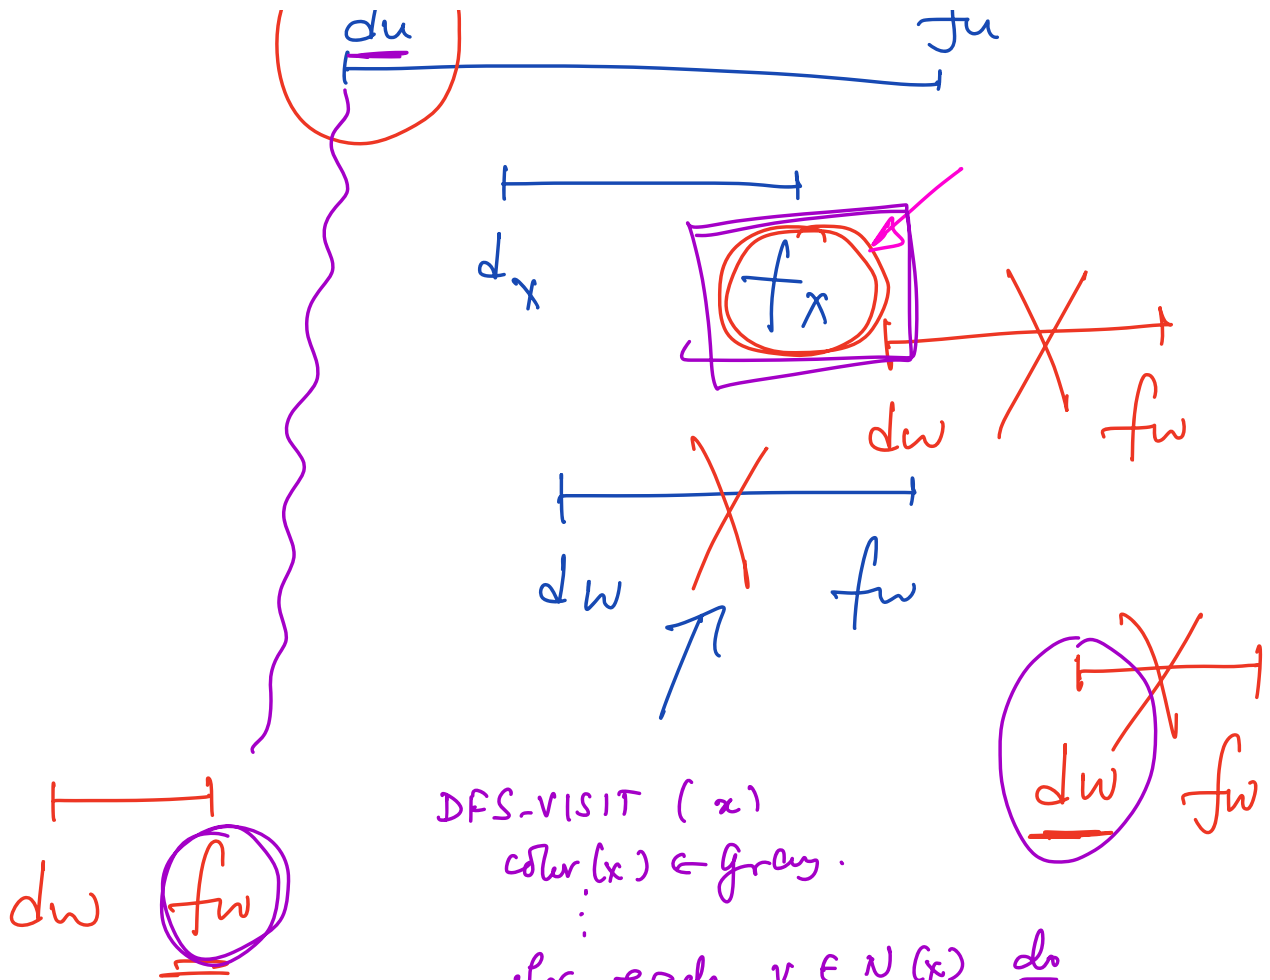 du fu
dx fx
dw fw
dw fw
dw fw
dw fw
DFS-VISIT (x)
color(x) ← gray.
for each v ∈ N(x) do